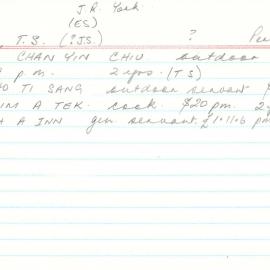 J.R. York
(ES)
T.S. (?JS.) ?
CHAN YIN CHIU outdoor
p.m. 2 yrs. (T.S)
TI SANG outdoor servant
A TEK. cook. $20 pm.
A INN gen. servant. £1.11.6 pm